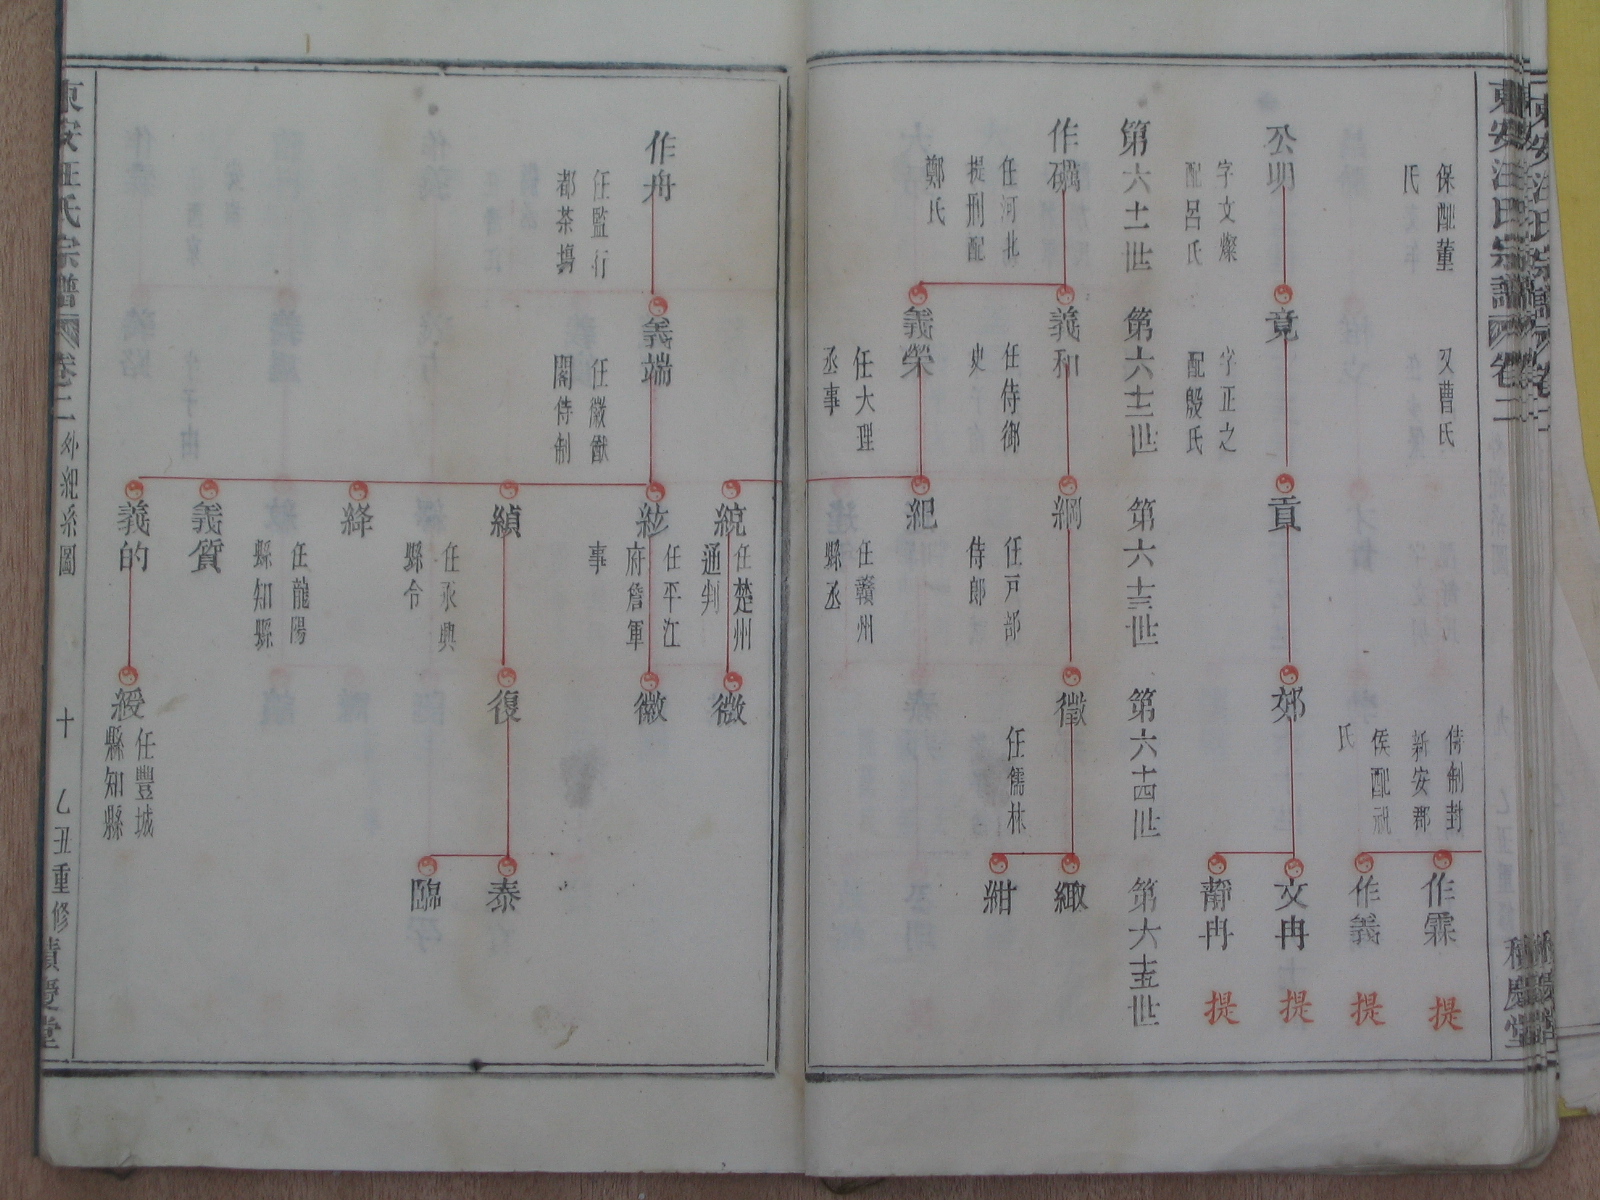 東安汪氏宗譜 卷二
積慶堂
保配董
氏
又曹氏
侍制封
新安郡
侯配祝
氏
作霖
提
作義
提
公明
字文燦
配呂氏
竟
字正之
配殷氏
貢
郊
文冉
提
靜冉
提
第六十一世
第六十二世
第六十三世
第六十四世
第六十五世
作礪
任河北
提刑配
鄭氏
義和
任侍御
史
綱
任戸部
侍郎
徵
任儒林
緅
紺
義榮
任大理
丞事
紀
任贛州
縣丞
統
任楚州
通判
徵
作舟
任監行
都茶塲
義端
任徽猷
閣侍制
紘
任平江
府詹軍
事
徽
縝
任永興
縣令
復
泰
臨
絳
義質
任龍陽
縣知縣
義的
綬
任豐城
縣知縣
東安汪氏宗譜
卷二
外紀系圖
十
乙丑重修
積慶堂